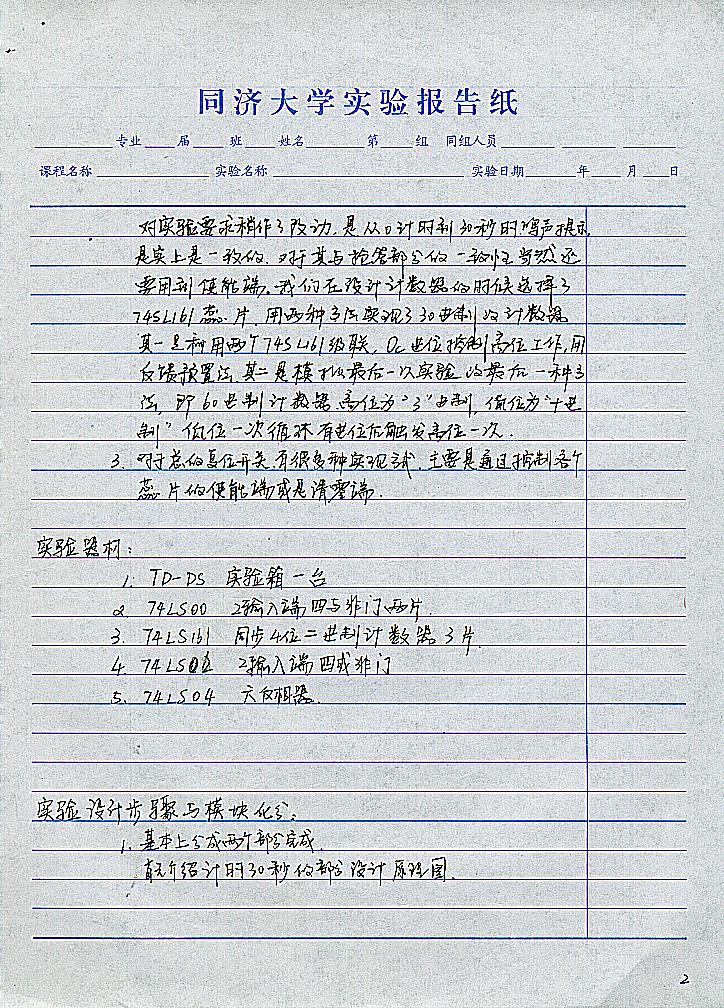 同济大学实验报告纸
专业 届 班 姓名 第 组 同组人员
课程名称 实验名称 实验日期 年 月 日
对实验要求稍作了改动,是从0计时到30秒时鸣声提示
是实上是一致的.对于其与抢答部分的一致性当然还
要用到使能端。我们在设计计数器的时候选择了
74SL161蕊片,用两种方法实现了30进制的计数器
其一是利用两个74SL161级联,Oc进位控制高位工作,用
反馈预置法,其二是模拟最后一次实验的最后一种方
法,即60进制计数器高位为"3"进制,低位为"十进
制"低位一次循环有进位后触发高位一次.
3. 对于总的复位开关,有很多种实现方式,主要是通过控制各个
蕊片的使能端或是清零端.
实验器材:
1. TD-DS 实验箱一台
2. 74LS00 2输入端四与非门两片.
3. 74LS161 同步4位二进制计数器3片.
4. 74LS02 2输入端四或非门
5. 74LS04 六反相器.
实验设计步骤与模块化分:
1. 基本上分成两个部分完成.
首先介绍计时30秒的部分设计原理图.
2